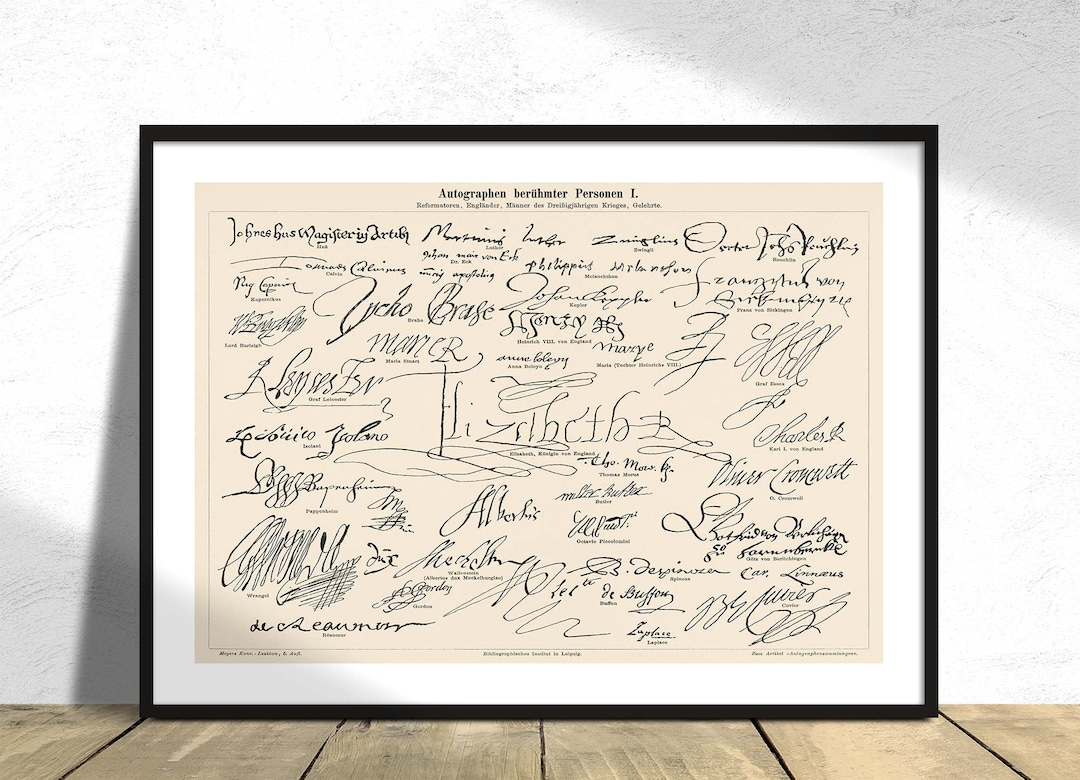 Autographen berühmter Personen I.
Reformatoren, Engländer, Männer des Dreißigjährigen Krieges, Gelehrte.
Johnes hus Magister in Artibus
Huß
Martinus Luther
Luther
Zwinglius
Zwingli
Doctor Johs Reuchlin
Reuchlin
Joannes Calvinus
Calvin
Johan mair von Eck
Dr. Eck
Philippus Melanchthon
Melanchthon
Franziskus von
Sickingen
Franz von Sickingen
Nic Copernic
Kopernikus
Tycho Brahe
Brahe
Johan Keppler
Kepler
Lord Burleigh
Henry
Heinrich VIII. von England
Marie R
Maria Stuart
anne boleyn
Anna Boleyn
marye
Maria (Tochter Heinrichs VIII.)
Graf Essex
R Leycester
Graf Leicester
Elizabeth R
Elisabeth, Königin von England
Charles R
Karl I. von England
Isolano
Isolani
Tho. More
Thomas Morus
Oliver Cromwell
O. Cromwell
Pappenheim
Pappenheim
Albertis
walter butler
Butler
Octavio Piccolomini
Götz von Berlichingen
Wrangel
dux
Meckelb
Wallenstein
(Albertus dux Meckelburgiae)
B. despinoza
Spinoza
Car. Linnaeus
Gordon
Gordon
Le Cte de Buffon
Buffon
Cuvier
Cuvier
de Reaumur
Réaumur
Laplace
Laplace
Meyers Konv.-Lexikon, 5. Aufl.
Bibliographisches Institut in Leipzig.
Zum Artikel »Autographensammlungen«.